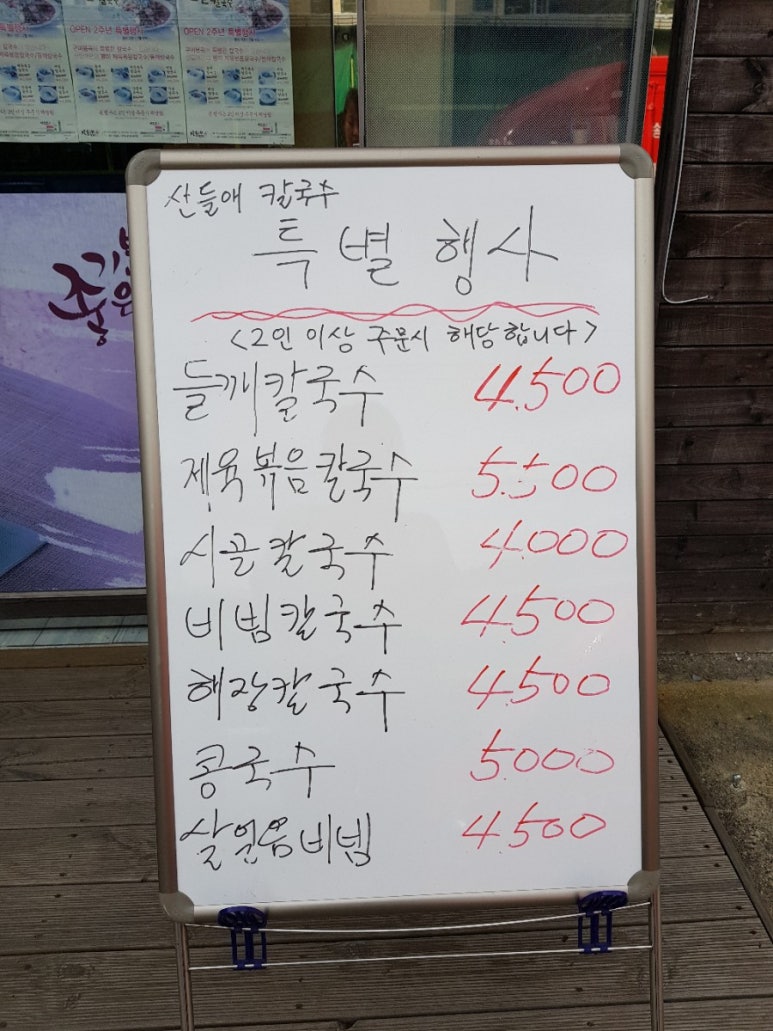 OPEN 2주년 특별행사
OPEN 2주년 특별행사
기분
좋은
산들애 칼국수
특별행사
<2인 이상 주문시 해당합니다>
들깨칼국수 4.500
제육볶음칼국수 5.500
시골칼국수 4.000
비빔칼국수 4.500
해장칼국수 4.500
콩국수 5.000
살얼음비빔 4.500